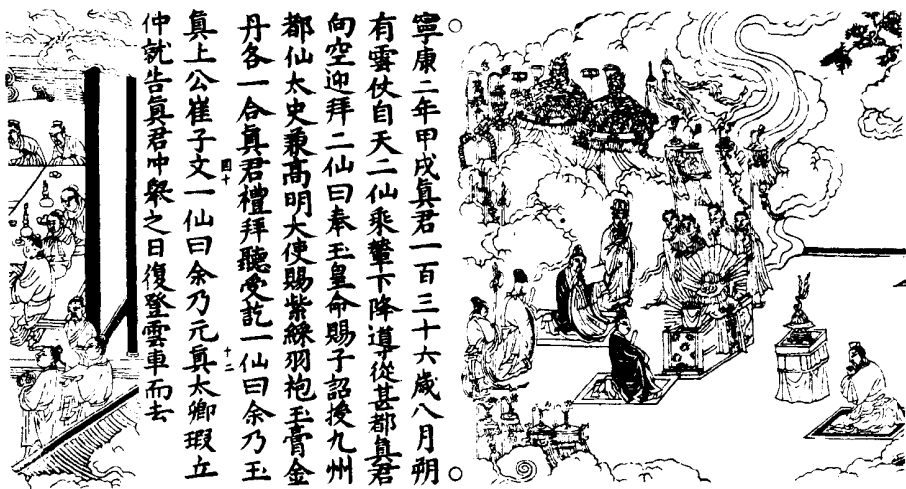 寧康二年甲戌眞君一百三十六歲八月朔
有雲仗自天二仙乘輦下降導從甚都眞君
向空迎拜二仙曰奉玉皇命賜子詔授九州
都仙太史兼高明大使賜紫綵羽袍玉膏金
丹各一合眞君禮拜聽受訖一仙曰余乃玉
四十
十二
眞上公崔子文一仙曰余乃元眞大卿瑕丘
仲就告眞君冲舉之日復登雲車而去